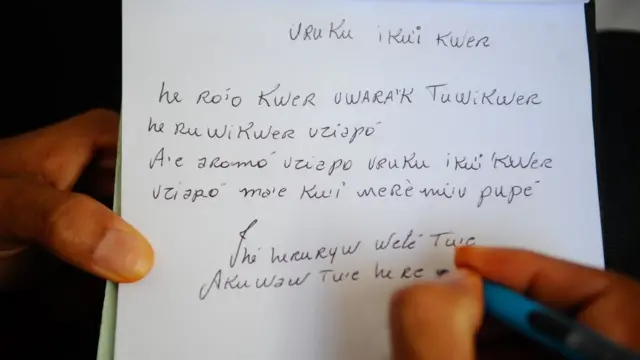 URUKU iKU'i KWER
he RO'O KWER UWARA'K TUWiKWER
he RUWiKWER UZiapó
A'e aRomó UZiapo URUKU iKU'i 'KWER
UZiapó ma'e KU'i meRè mÜU pupé
Ihé heRURyW Weté TU'e
AKUWaW TU'e heRe